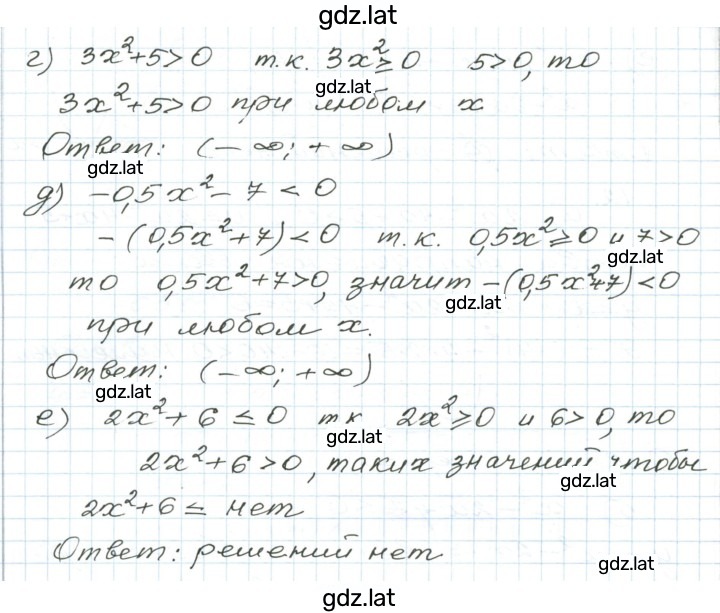 gdz.lat
г) 3x²+5>0 т.к. 3x²≥0 5>0, то
gdz.lat
3x²+5>0 при любом x
Ответ: (-∞; +∞)
gdz.lat
д) -0,5x²-7<0
-(0,5x²+7)<0 т.к. 0,5x²≥0 и 7>0
gdz.lat
то 0,5x²+7>0, значит -(0,5x²+7)<0
gdz.lat
при любом x.
Ответ: (-∞; +∞)
gdz.lat
е) 2x²+6≤0 тк 2x²≥0 и 6>0, то
gdz.lat
2x²+6>0, таких значений чтобы
gdz.lat
2x²+6≤ нет
Ответ: решений нет
gdz.lat
gdz.lat